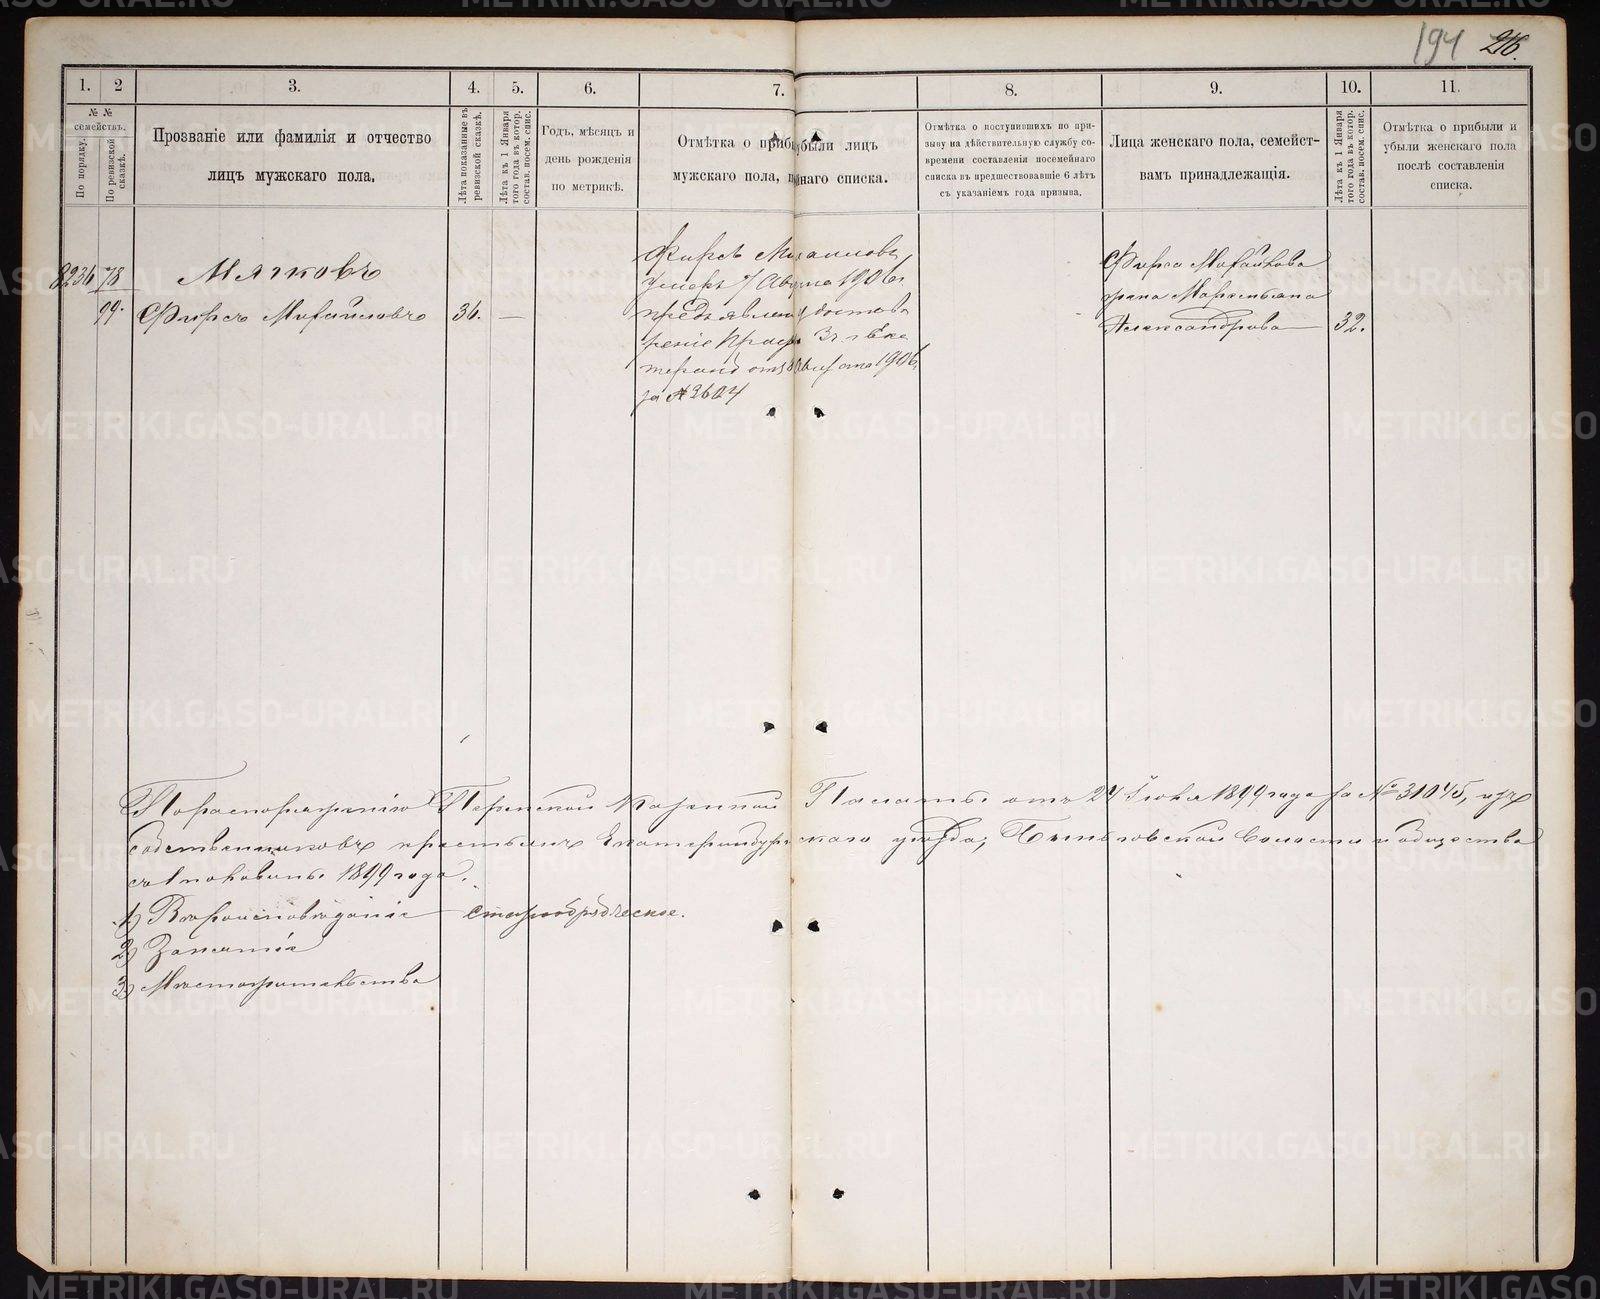 194 216.
1. 2 3. 4. 5. 6. 7. 8. 9. 10. 11.
№ № семействъ.
По порядку.
По ревизской сказкѣ.
Прозваніе или фамилія и отчество
лицъ мужскаго пола.
Лѣта показанные въ
ревизской сказкѣ.
Лѣта къ 1 Января
того года въ котор.
состав. посем. спис.
Годъ, мѣсяцъ и
день рожденія
по метрикѣ.
Отмѣтка о прибы убыли лицъ
мужскаго пола, наго списка.
Отмѣтка о поступившихъ по при-
зыву на дѣйствительную службу со-
времени составленія посемейнаго
списка въ предшествовавшіе 6 лѣтъ
съ указаніемъ года призыва.
Лица женскаго пола, семейст-
вамъ принадлежащія.
Лѣта къ 1 Января
того года въ котор.
состав. посем. спис.
Отмѣтка о прибыли и
убыли женскаго пола
послѣ составленія
списка.
8236 78
99.
Мячковъ
Фирсъ Михайловъ 36. —
Фирсъ Михаиловъ
умеръ 7 Августа 1906 г
за № 3604
Фирса Михайлова
жена Маремьяна
Александрова — 32.
По распоряженію Пермской Казенной Палаты отъ 24 Іюля 1899 года за № 31045, изъ
собственниковъ крестьянъ Екатеринбургскаго уѣзда, волости и общества
съ половины 1899 года.
1) Вѣроисповѣданіе — старообрядческое.
2) Занятіе
3) Мѣстожительство
METRIKI.GASO-URAL.RU